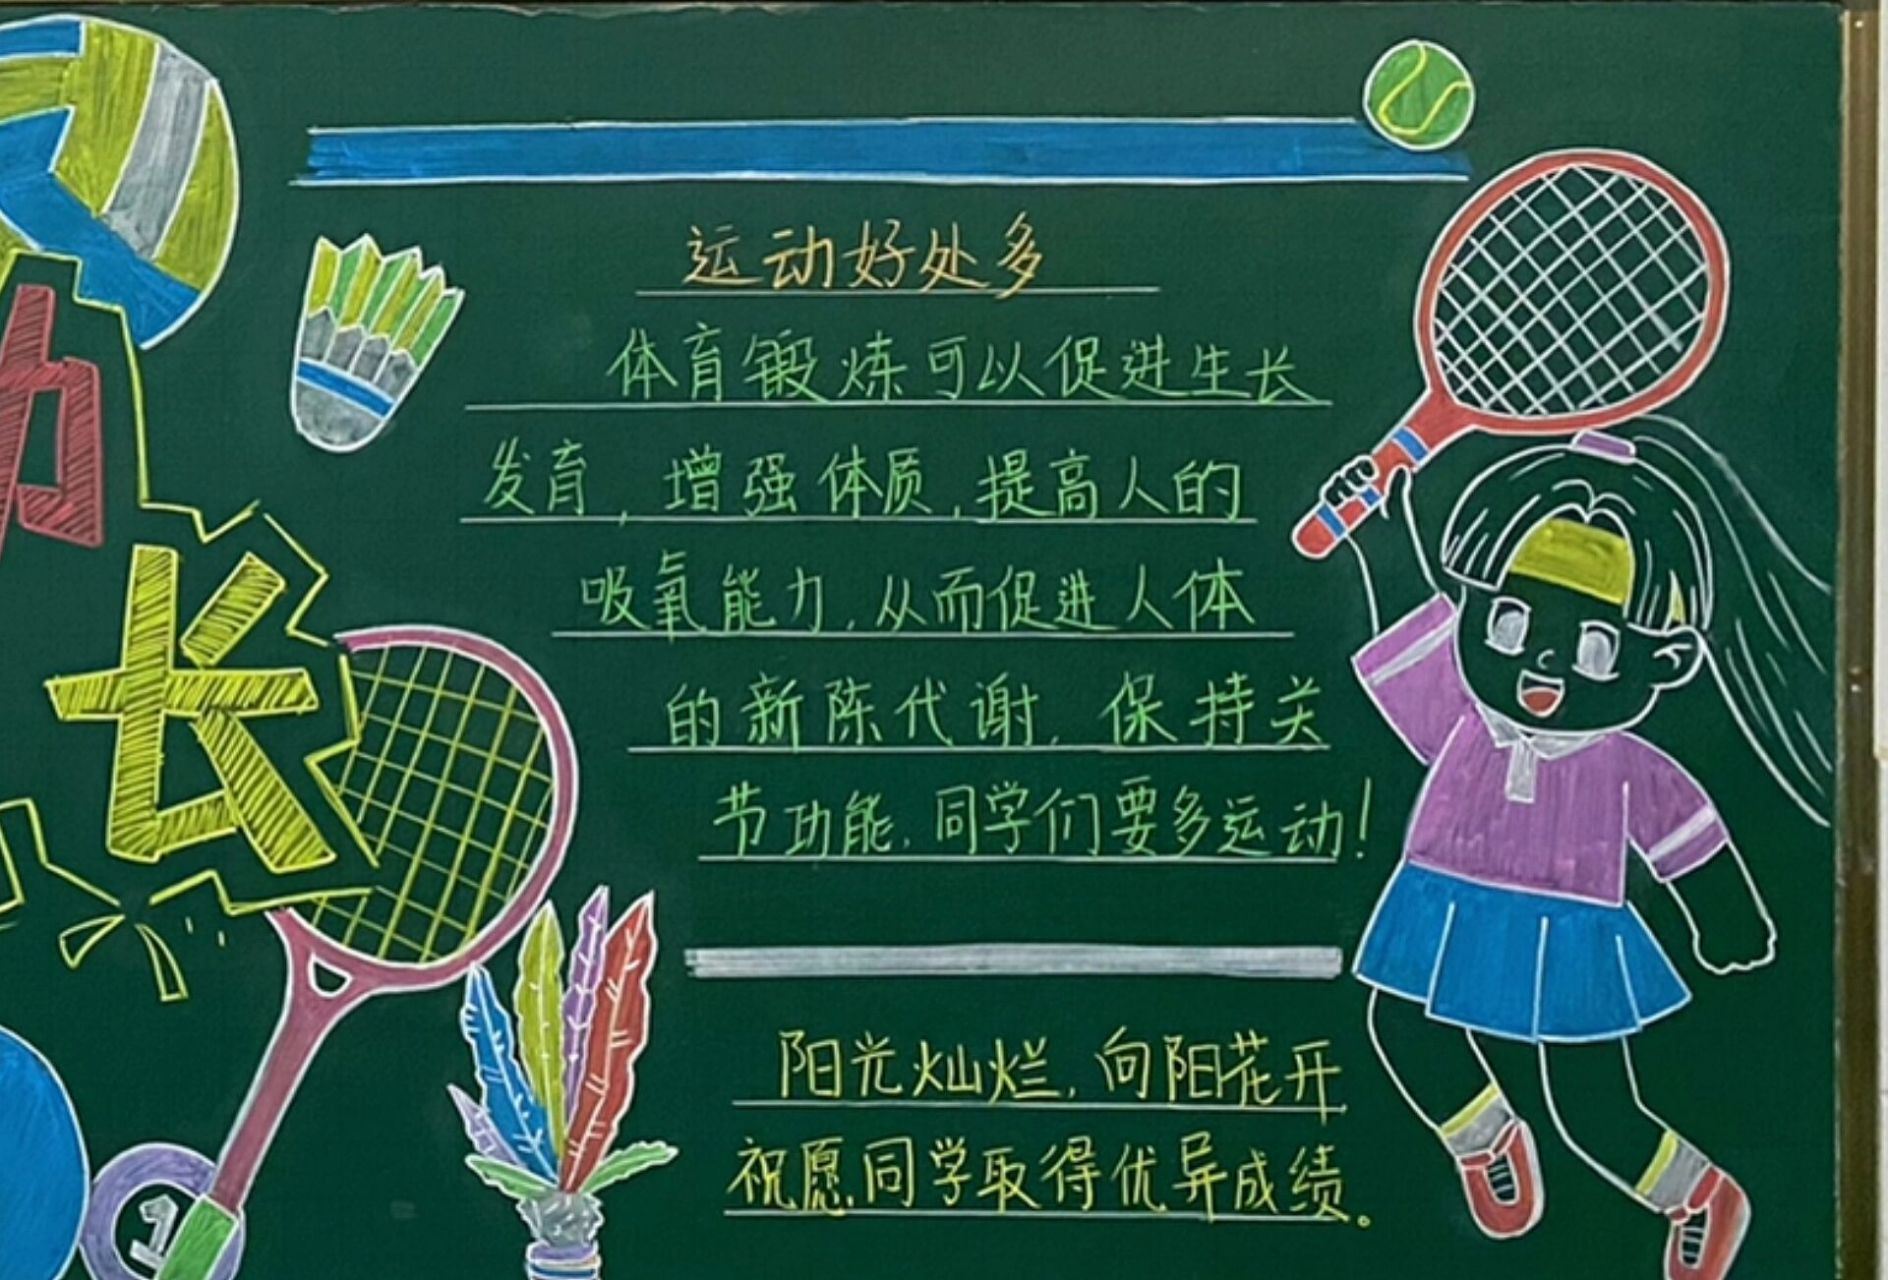 力
长
运动好处多
体育锻炼可以促进生长
发育,增强体质,提高人的
吸氧能力,从而促进人体
的新陈代谢,保持关
节功能,同学们要多运动!
阳光灿烂,向阳花开
祝愿同学取得优异成绩。
1